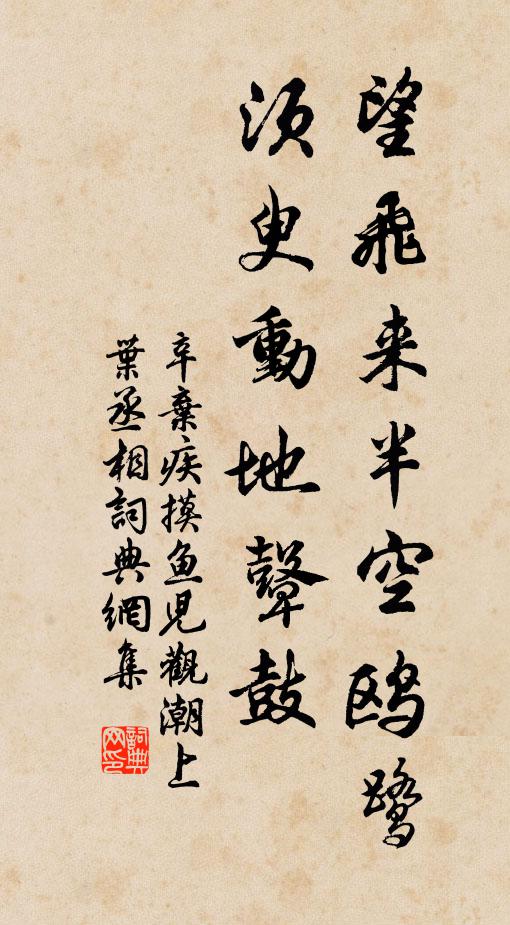 望飛来半空鸥鹭
須臾動地鼙鼓
辛棄疾摸魚兒觀潮上
葉丞相詞典網集
詞典网印